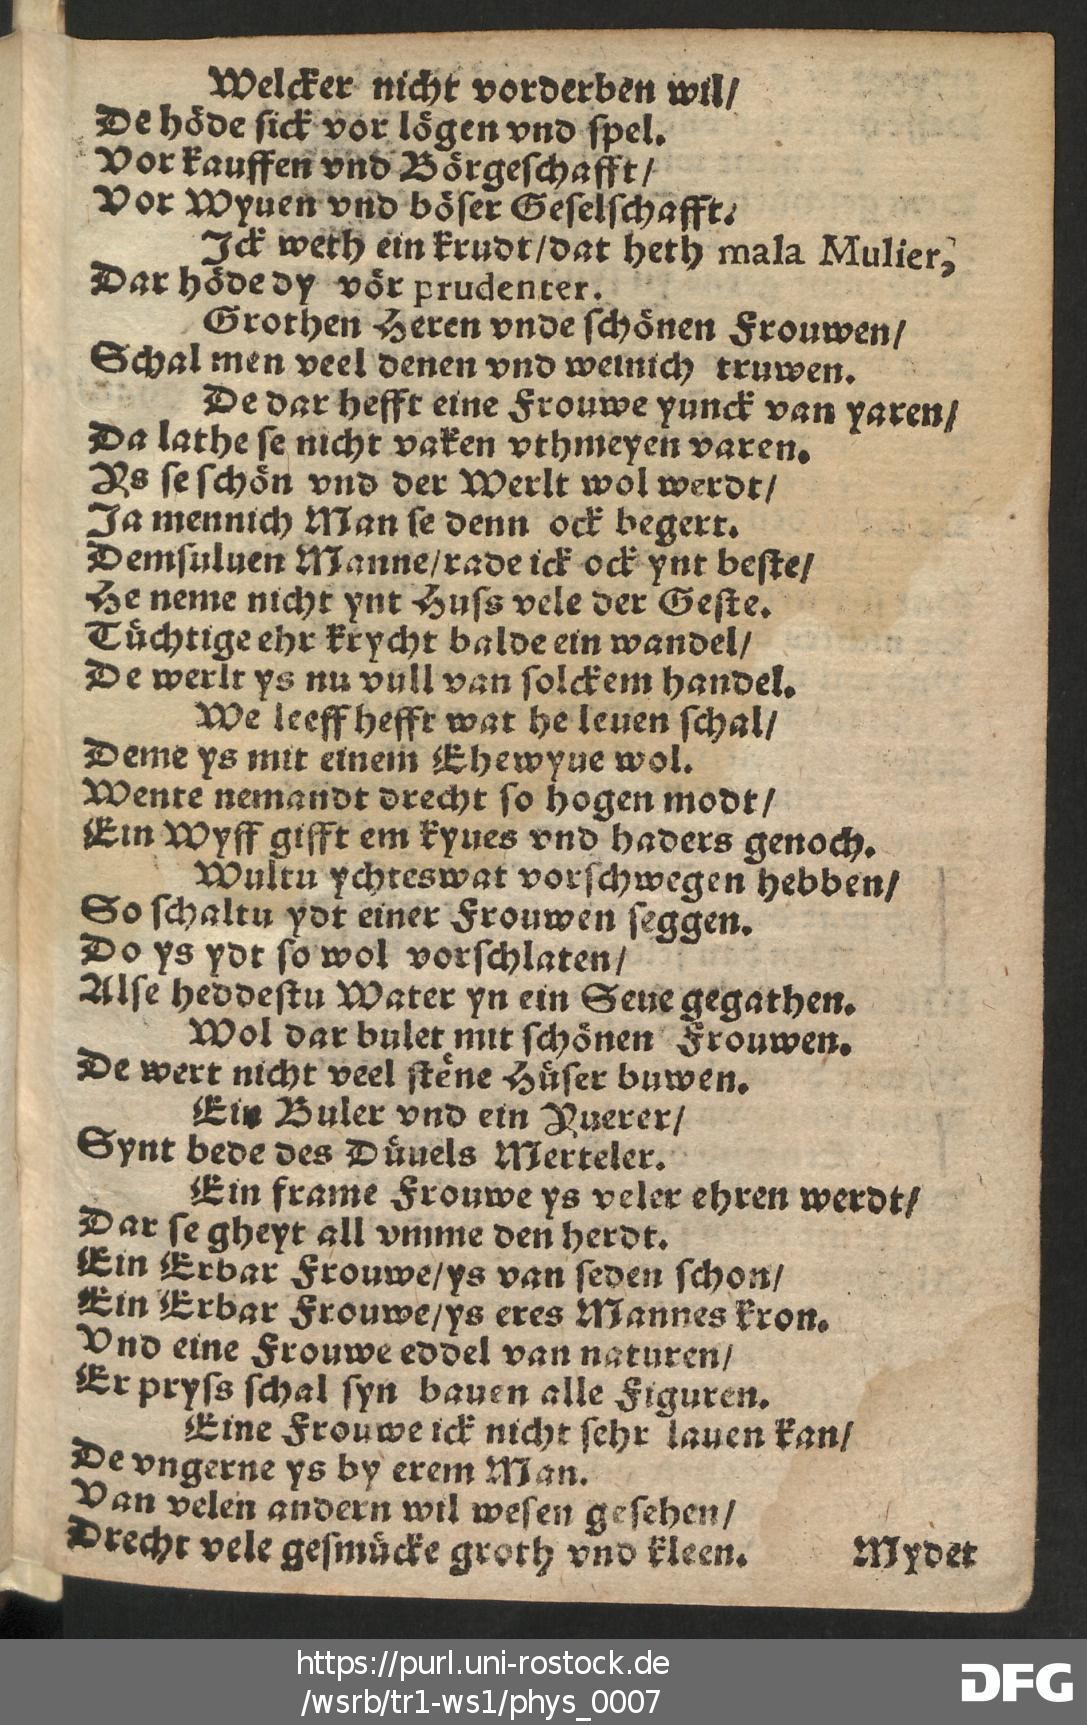 Welcker nicht vorderben wil/
De höde sick vor lögen vnd spel.
Vor kauffen vnd Börgeschafft/
Vor Wyuen vnd böser Geselschafft.
Ick weth ein krudt/dat heth mala Mulier,
Dar höde dy vör prudenter.
Grothen Heren vnde schönen Frouwen/
Schal men veel denen vnd weinich truwen.
De dar hefft eine Frouwe yunck van yaren/
Da lathe se nicht vaken vthmeyen varen.
Ys se schön vnd der Werlt wol werdt/
Ja mennich Man se denn ock begert.
Demsuluen Manne/rade ick ock ynt beste/
He neme nicht ynt Huss vele der Geste.
Tüchtige ehr krycht balde ein wandel/
De werlt ys nu vull van solckem handel.
We leeff hefft wat he leuen schal/
Deme ys mit einem Ehewyue wol.
Wente nemandt drecht so hogen modt/
Ein Wyff gifft em kyues vnd haders genoch.
Wultu ychteswat vorschwegen hebben/
So schaltu ydt einer Frouwen seggen.
Do ys ydt so wol vorschlaten/
Alse heddestu Water yn ein Seue gegathen.
Wol dar bulet mit schönen Frouwen.
De wert nicht veel stëne Hüser buwen.
Ein Buler vnd ein Ruerer/
Synt bede des Düuels Merteler.
Ein frame Frouwe ys veler ehren werdt/
Dar se gheyt all vmme den herdt.
Ein Erbar Frouwe/ys van seden schon/
Ein Erbar Frouwe/ys eres Mannes kron.
Vnd eine Frouwe eddel van naturen/
Er pryss schal syn bauen alle Figuren.
Eine Frouwe ick nicht sehr lauen kan/
De vngerne ys by erem Man.
Van velen andern wil wesen gesehen/
Drecht vele gesmücke groth vnd kleen.
Mydet
https://purl.uni-rostock.de
/wsrb/tr1-ws1/phys_0007
DFG